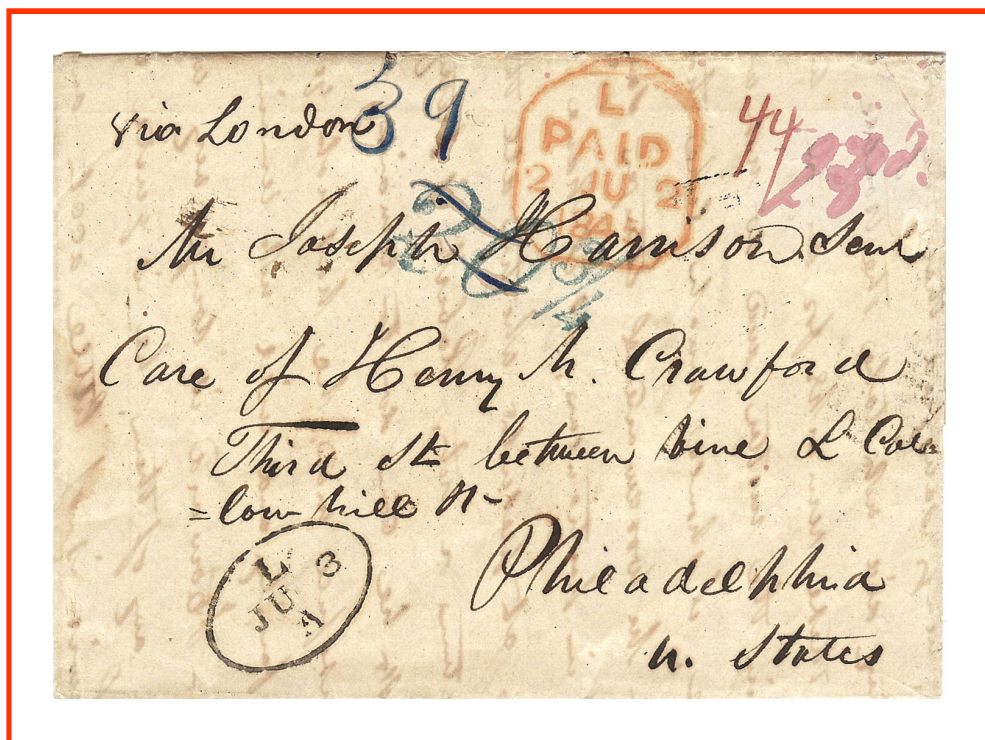 via London 39
44
L
PAID
2 JU 2
Mr Joseph Harrison Senr
Care of Henry M. Crawford
Third St between Vine & Cal=
=low hill St
L
JU 3
A
Philadelphia
U. States